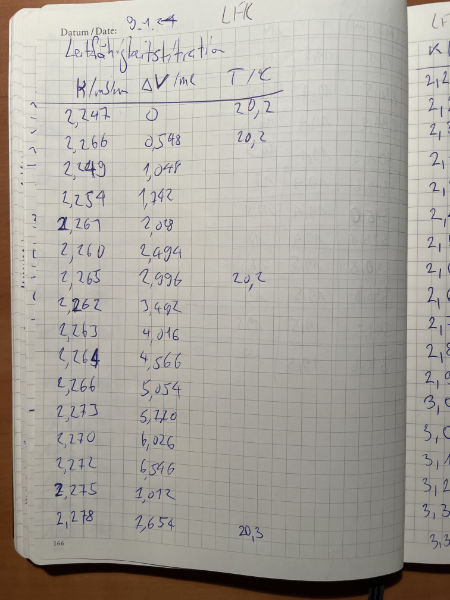 Datum / Date: 9.1.24 LFK
Leitfähigkeitstitration
K/mS/m ΔV/ml T/°C
2,247 0 20,2
2,266 0,548 20,2
2,249 1,048
2,254 1,742
2,261 2,018
2,260 2,494
2,265 2,996 20,2
2,262 3,492
2,263 4,016
2,264 4,566
2,266 5,054
2,273 5,770
2,270 6,026
2,272 6,546
2,275 1,012
2,278 2,654 20,3
166